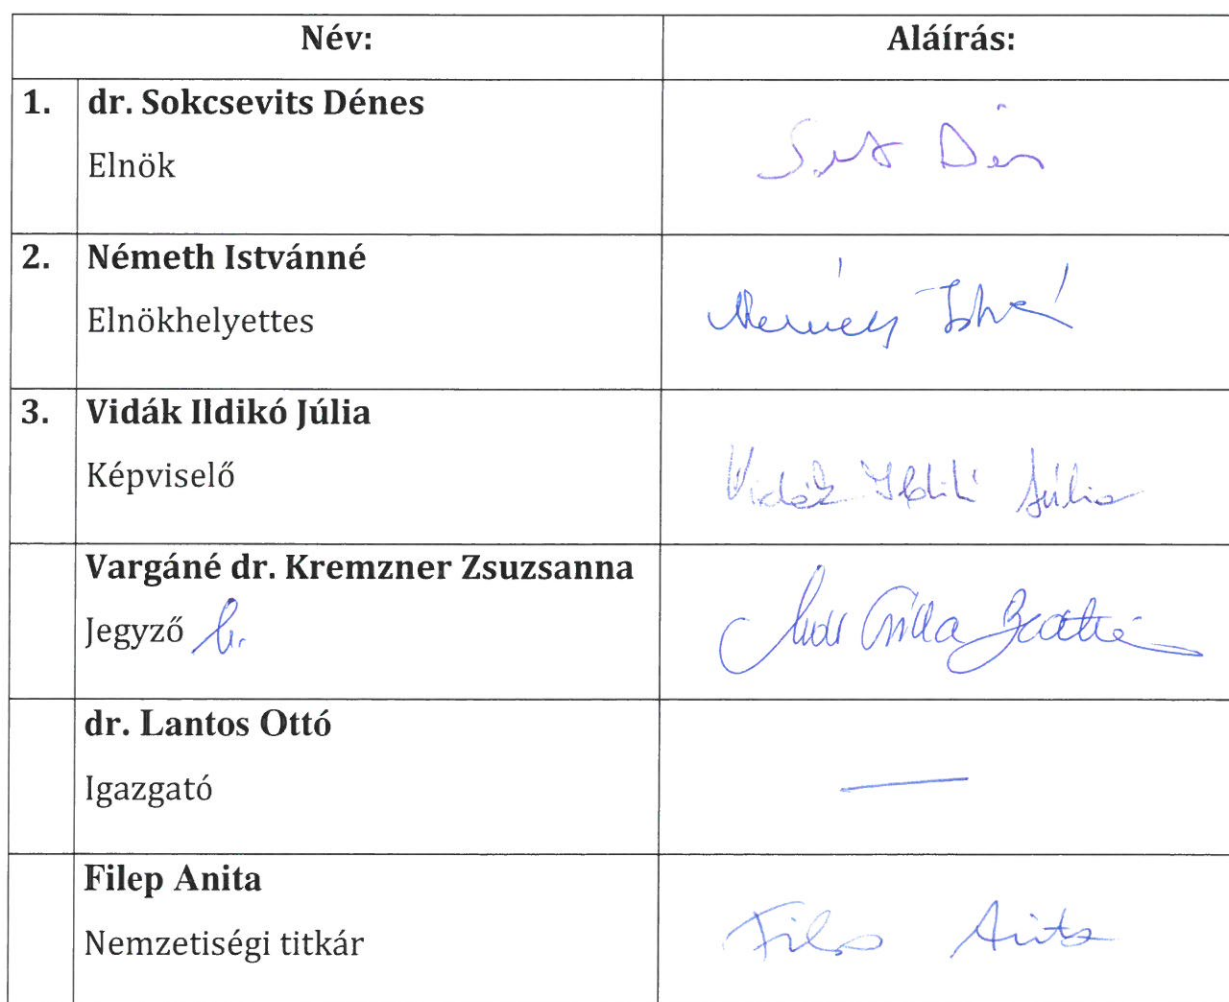 Név: Aláírás:
1. dr. Sokcsevits Dénes
Elnök
2. Németh Istvánné
Elnökhelyettes
3. Vidák Ildikó Júlia
Képviselő
Vidák Ildikó Júlia
Vargáné dr. Kremzner Zsuzsanna
Jegyző h.
dr. Lantos Ottó
Igazgató
—
Filep Anita
Nemzetiségi titkár
Filep Anita